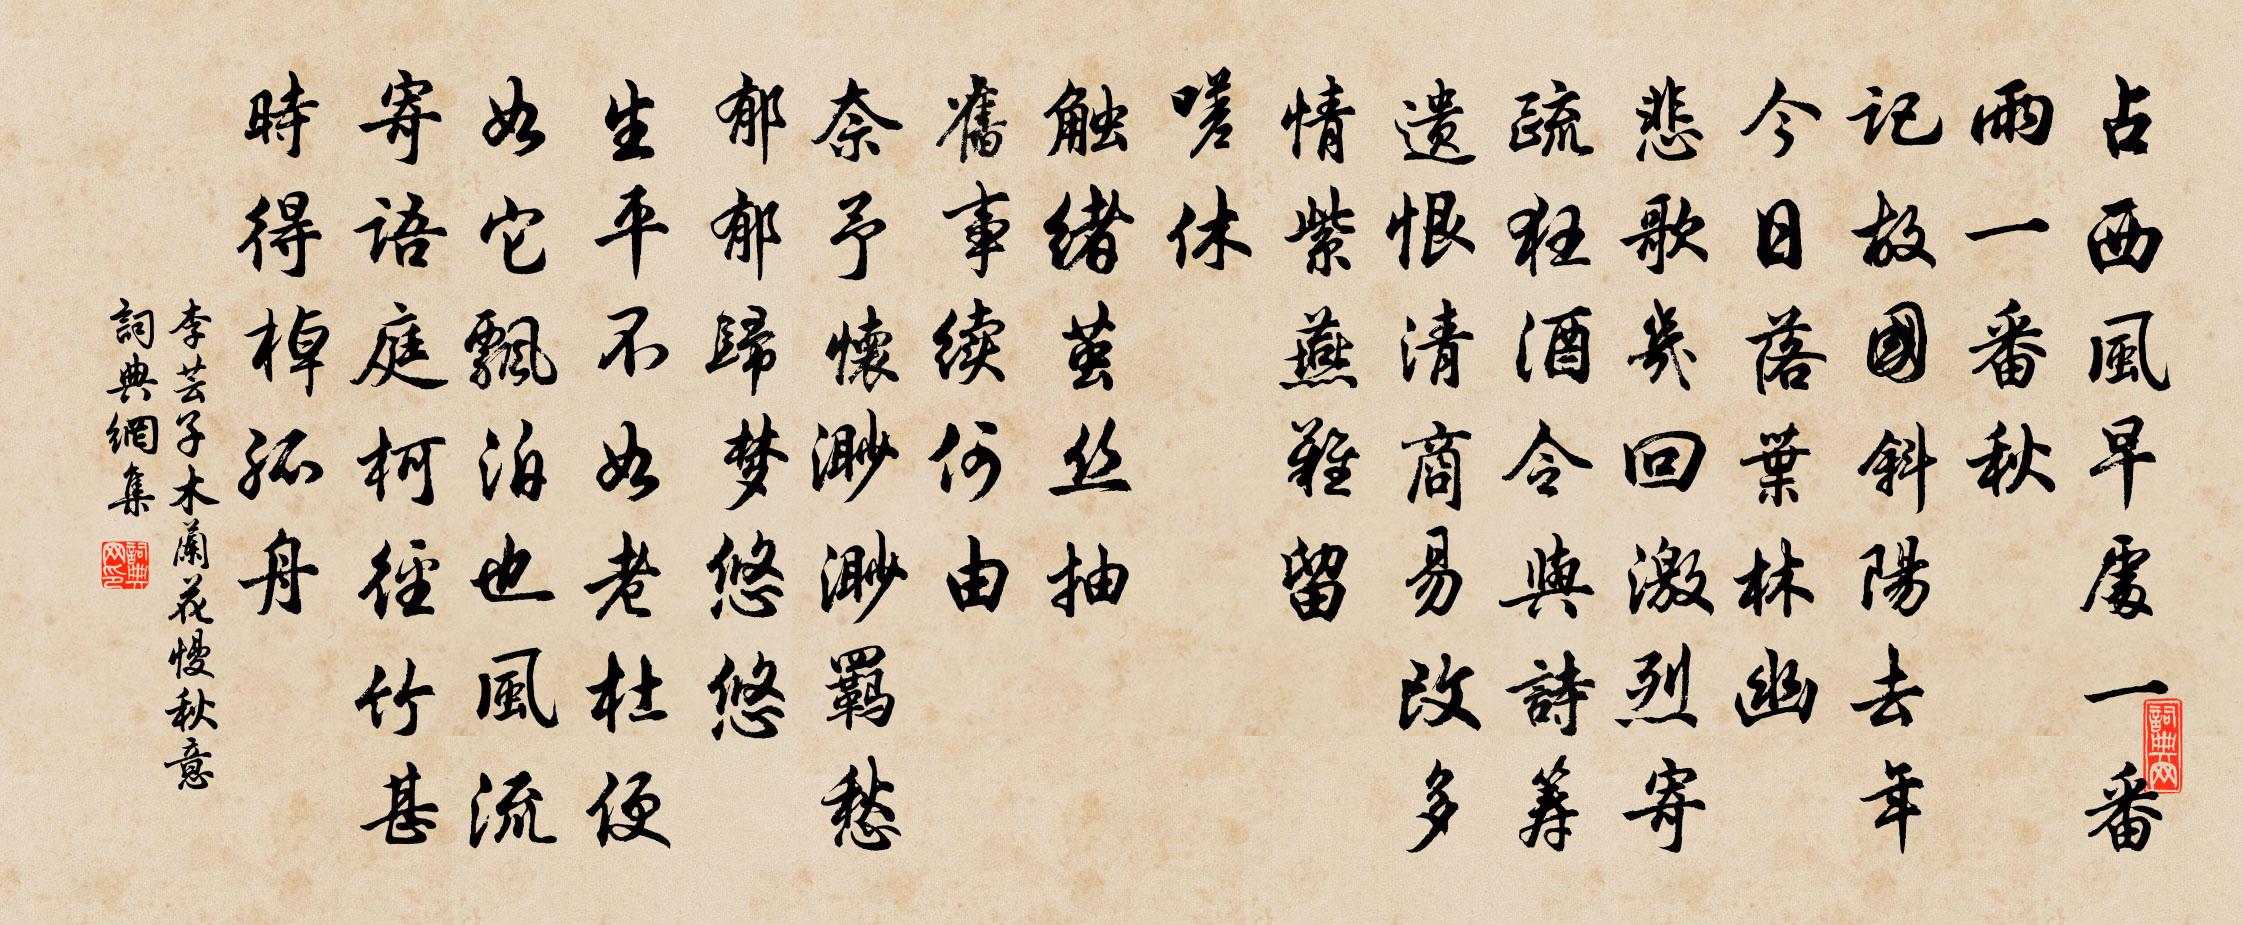 占西風早處一番
雨一番秋
記故國斜陽去年
今日落葉林幽
悲歌幾回激烈寄
疏狂酒令與詩籌
遺恨清商易改多
情紫燕難留
嗟休
觸緒茧丝抽
舊事续何由
奈予懷渺渺羁愁
郁郁歸梦悠悠
生平不如老杜便
如它飄泊也風流
寄語庭柯徑竹甚
時得棹孤舟
李芸子木蘭花慢秋意
詞典網集
詞典网
詞典网印